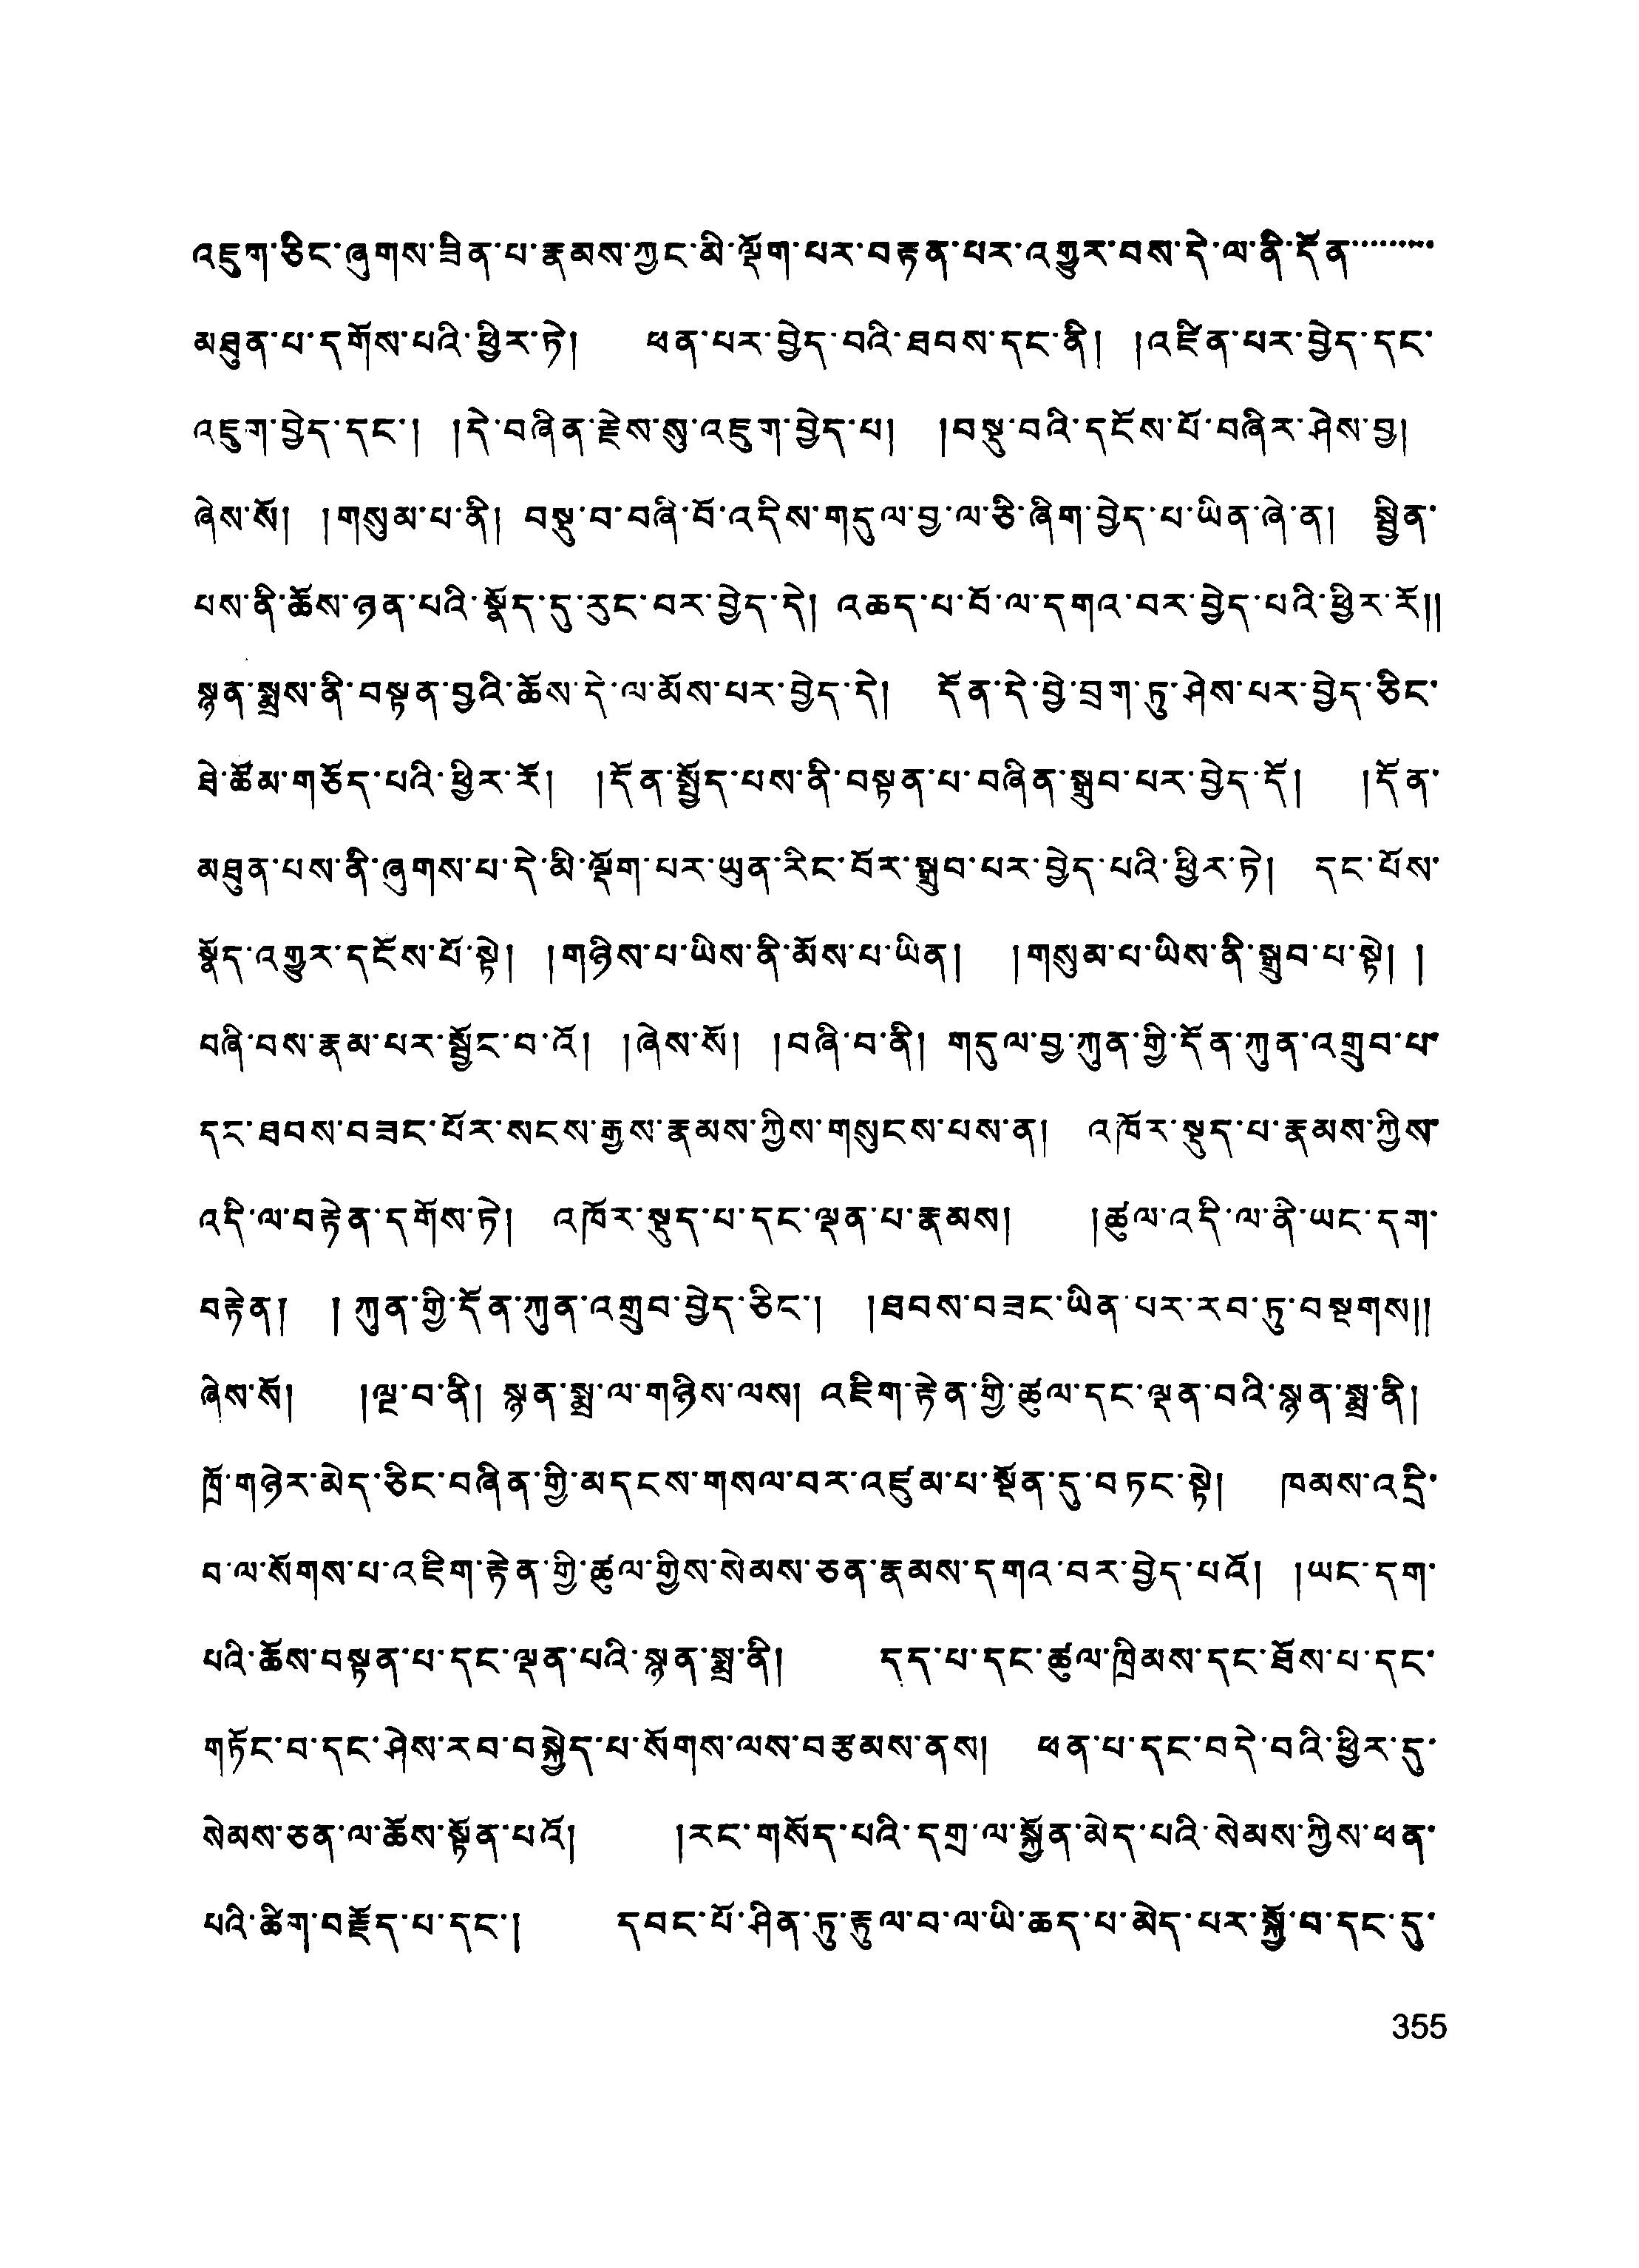 འཇུག་ཅིང་ཞུགས་ཟིན་པ་རྣམས་ཀྱང་མི་ལྡོག་པར་བརྟན་པར་འགྱུར་བས་དེ་ལ་ནི་དོན་་་་་་་་་
མཐུན་པ་དགོས་པའི་ཕྱིར་ཏེ། ཕན་པར་བྱེད་བའི་ཐབས་དང་ནི། །འཛིན་པར་བྱེད་དང་
འཇུག་བྱེད་དང་། །དེ་བཞིན་རྗེས་སུ་འཇུག་བྱེད་པ། །བསྡུ་བའི་དངོས་པོ་བཞིར་ཤེས་བྱ།
ཞེས་སོ། །གསུམ་པ་ནི། བསྡུ་བ་བཞི་བོ་འདིས་གདུལ་བྱ་ལ་ཅི་ཞིག་བྱེད་པ་ཡིན་ཞེ་ན། སྦྱིན་
པས་ནི་ཆོས་ཉན་པའི་སྣོད་དུ་རུང་བར་བྱེད་དེ། འཆད་པ་བོ་ལ་དགའ་བར་བྱེད་པའི་ཕྱིར་རོ།།
སྙན་སྨྲས་ནི་བསྟན་བྱའི་ཆོས་དེ་ལ་མོས་པར་བྱེད་དེ། དོན་དེ་བྱེ་བྲག་ཏུ་ཤེས་པར་བྱེད་ཅིང་
ཐེ་ཚོམ་གཅོད་པའི་ཕྱིར་རོ། །དོན་སྤྱོད་པས་ནི་བསྟན་པ་བཞིན་སྒྲུབ་པར་བྱེད་དོ། །དོན་
མཐུན་པས་ནི་ཞུགས་པ་དེ་མི་ལྡོག་པར་ཡུན་རིང་བོར་སྒྲུབ་པར་བྱེད་པའི་ཕྱིར་ཏེ། དང་པོས་
སྣོད་འགྱུར་དངོས་པོ་སྟེ། །གཉིས་པ་ཡིས་ནི་མོས་པ་ཡིན། །གསུམ་པ་ཡིས་ནི་སྒྲུབ་པ་སྟེ། །
བཞི་བས་རྣམ་པར་སྦྱོང་བ་འོ། །ཞེས་སོ། །བཞི་བ་ནི། གདུལ་བྱ་ཀུན་གྱི་དོན་ཀུན་འགྲུབ་པ་
དང་ཐབས་བཟང་པོར་སངས་རྒྱས་རྣམས་ཀྱིས་གསུངས་པས་ན། འཁོར་སྡུད་པ་རྣམས་ཀྱིས་
འདི་ལ་བརྟེན་དགོས་ཏེ། འཁོར་སྡུད་པ་དང་ལྡན་པ་རྣམས། །ཚུལ་འདི་ལ་ནི་ཡང་དག་
བརྟེན། །ཀུན་གྱི་དོན་ཀུན་འགྲུབ་བྱེད་ཅིང་། །ཐབས་བཟང་ཡིན་པར་རབ་ཏུ་བསྔགས།།
ཞེས་སོ། །ལྔ་བ་ནི། སྙན་སྨྲ་ལ་གཉིས་ལས། འཇིག་རྟེན་གྱི་ཚུལ་དང་ལྡན་བའི་སྙན་སྨྲ་ནི།
ཁྲོ་གཉེར་མེད་ཅིང་བཞིན་གྱི་མདངས་གསལ་བར་འཛུམ་པ་སྔོན་དུ་བཏང་སྟེ། ཁམས་འདྲི་
བ་ལ་སོགས་པ་འཇིག་རྟེན་གྱི་ཚུལ་གྱིས་སེམས་ཅན་རྣམས་དགའ་བར་བྱེད་པའོ། །ཡང་དག་
པའི་ཆོས་བསྟན་པ་དང་ལྡན་པའི་སྙན་སྨྲ་ནི། དད་པ་དང་ཚུལ་ཁྲིམས་དང་ཐོས་པ་དང་
གཏོང་བ་དང་ཤེས་རབ་བསྐྱེད་པ་སོགས་ལས་བརྩམས་ནས། ཕན་པ་དང་བདེ་བའི་ཕྱིར་དུ་
སེམས་ཅན་ལ་ཆོས་སྟོན་པའོ། །རང་གསོད་པའི་དགྲ་ལ་སྐྱོན་མེད་པའི་སེམས་ཀྱིས་ཕན་
པའི་ཚིག་བརྗོད་པ་དང་། དབང་པོ་ཤིན་ཏུ་རྟུལ་བ་ལ་ཡི་ཆད་པ་མེད་པར་སྐྱོ་བ་དང་དུ་
355